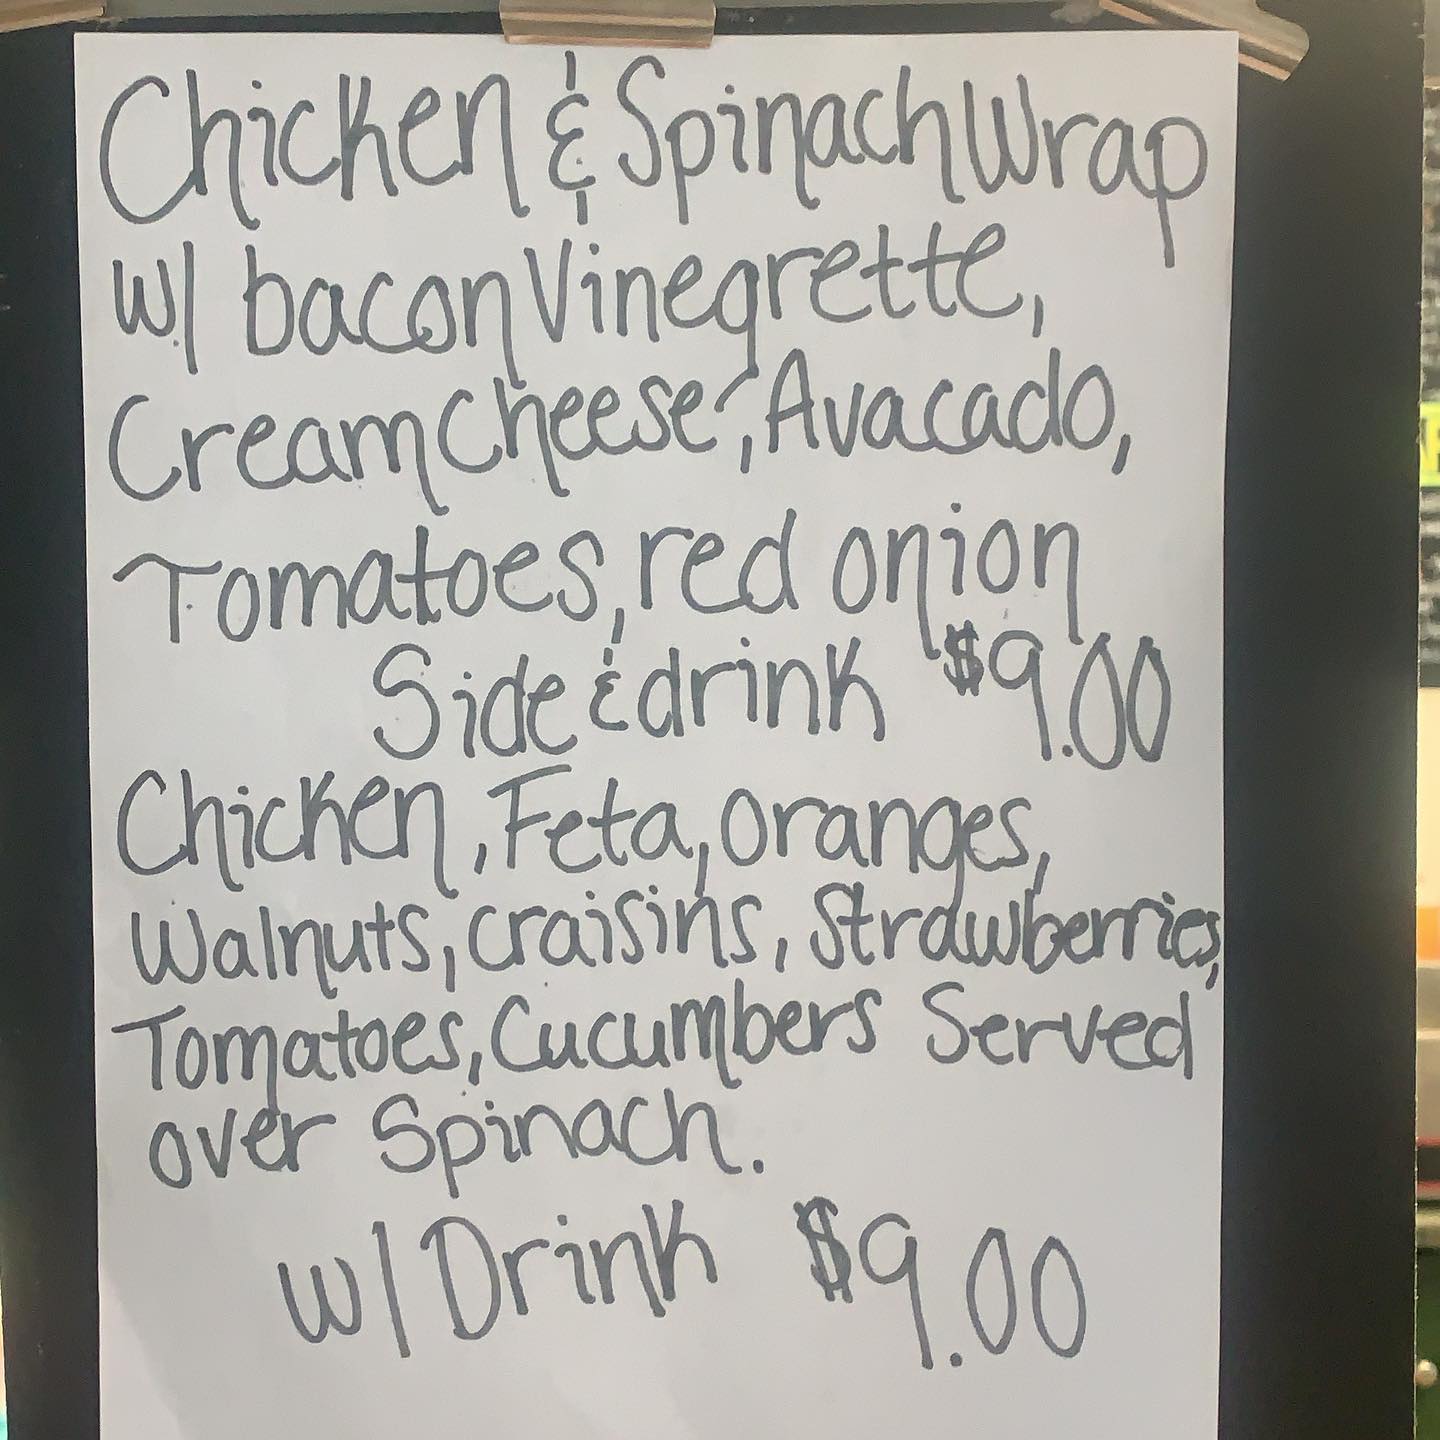 Chicken & Spinach Wrap
w/ bacon Vinegrette,
Cream Cheese, Avacado,
Tomatoes, red onion
Side & drink $9.00
Chicken, Feta, oranges,
Walnuts, craisins, Strawberries,
Tomatoes, Cucumbers Served
over Spinach.
w/ Drink $9.00